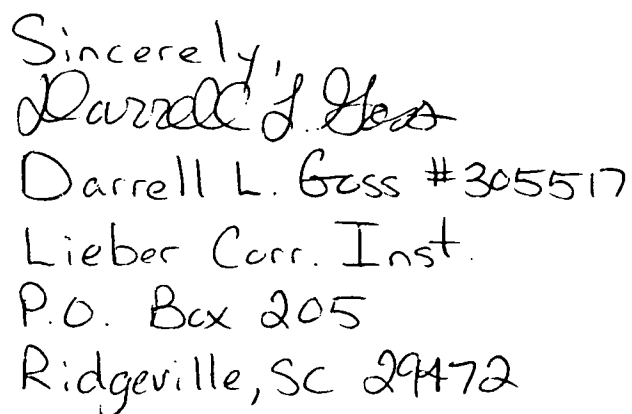 Sincerely,
Darrell L. Goss
Darrell L. Goss #305517
Lieber Corr. Inst.
P.O. Box 205
Ridgeville, SC 29472